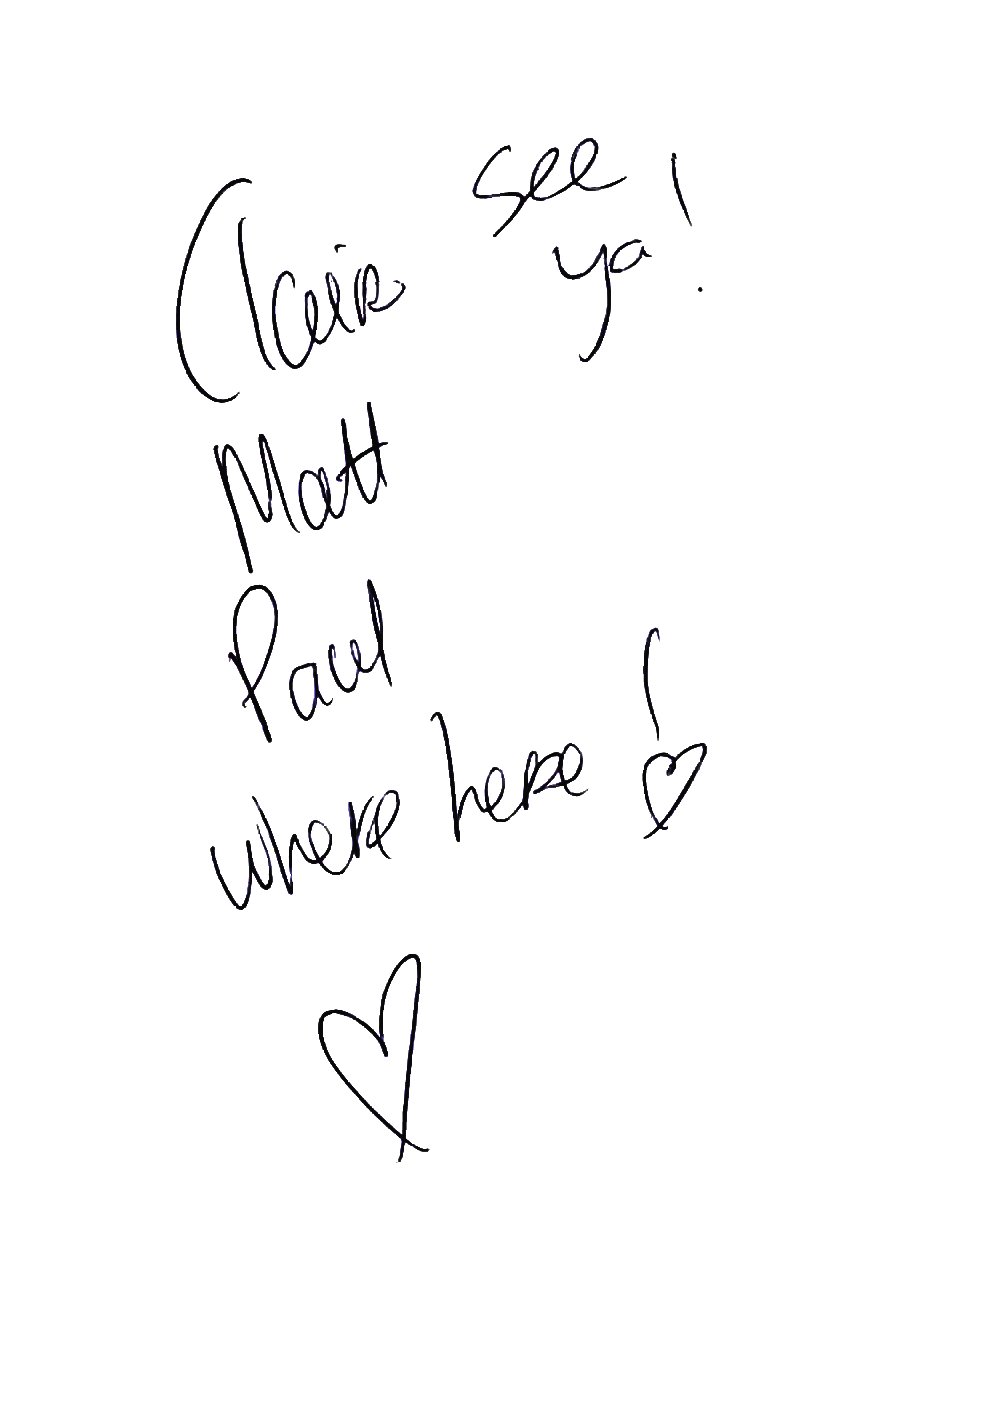 see
ya!
Clair
Matt
Paul
where here!